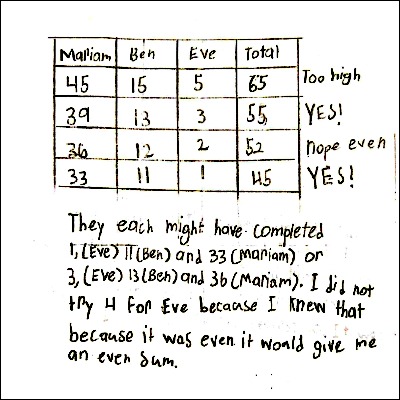 Mariam Ben Eve Total
45 15 5 65 Too high
39 13 3 55 YES!
36 12 2 52 nope even
33 11 1 45 YES!
They each might have completed
1, (Eve) 11 (Ben) and 33 (Mariam) or
3, (Eve) 13 (Ben) and 36 (Mariam). I did not
try 4 for Eve because I knew that
because it was even it would give me
an even sum.